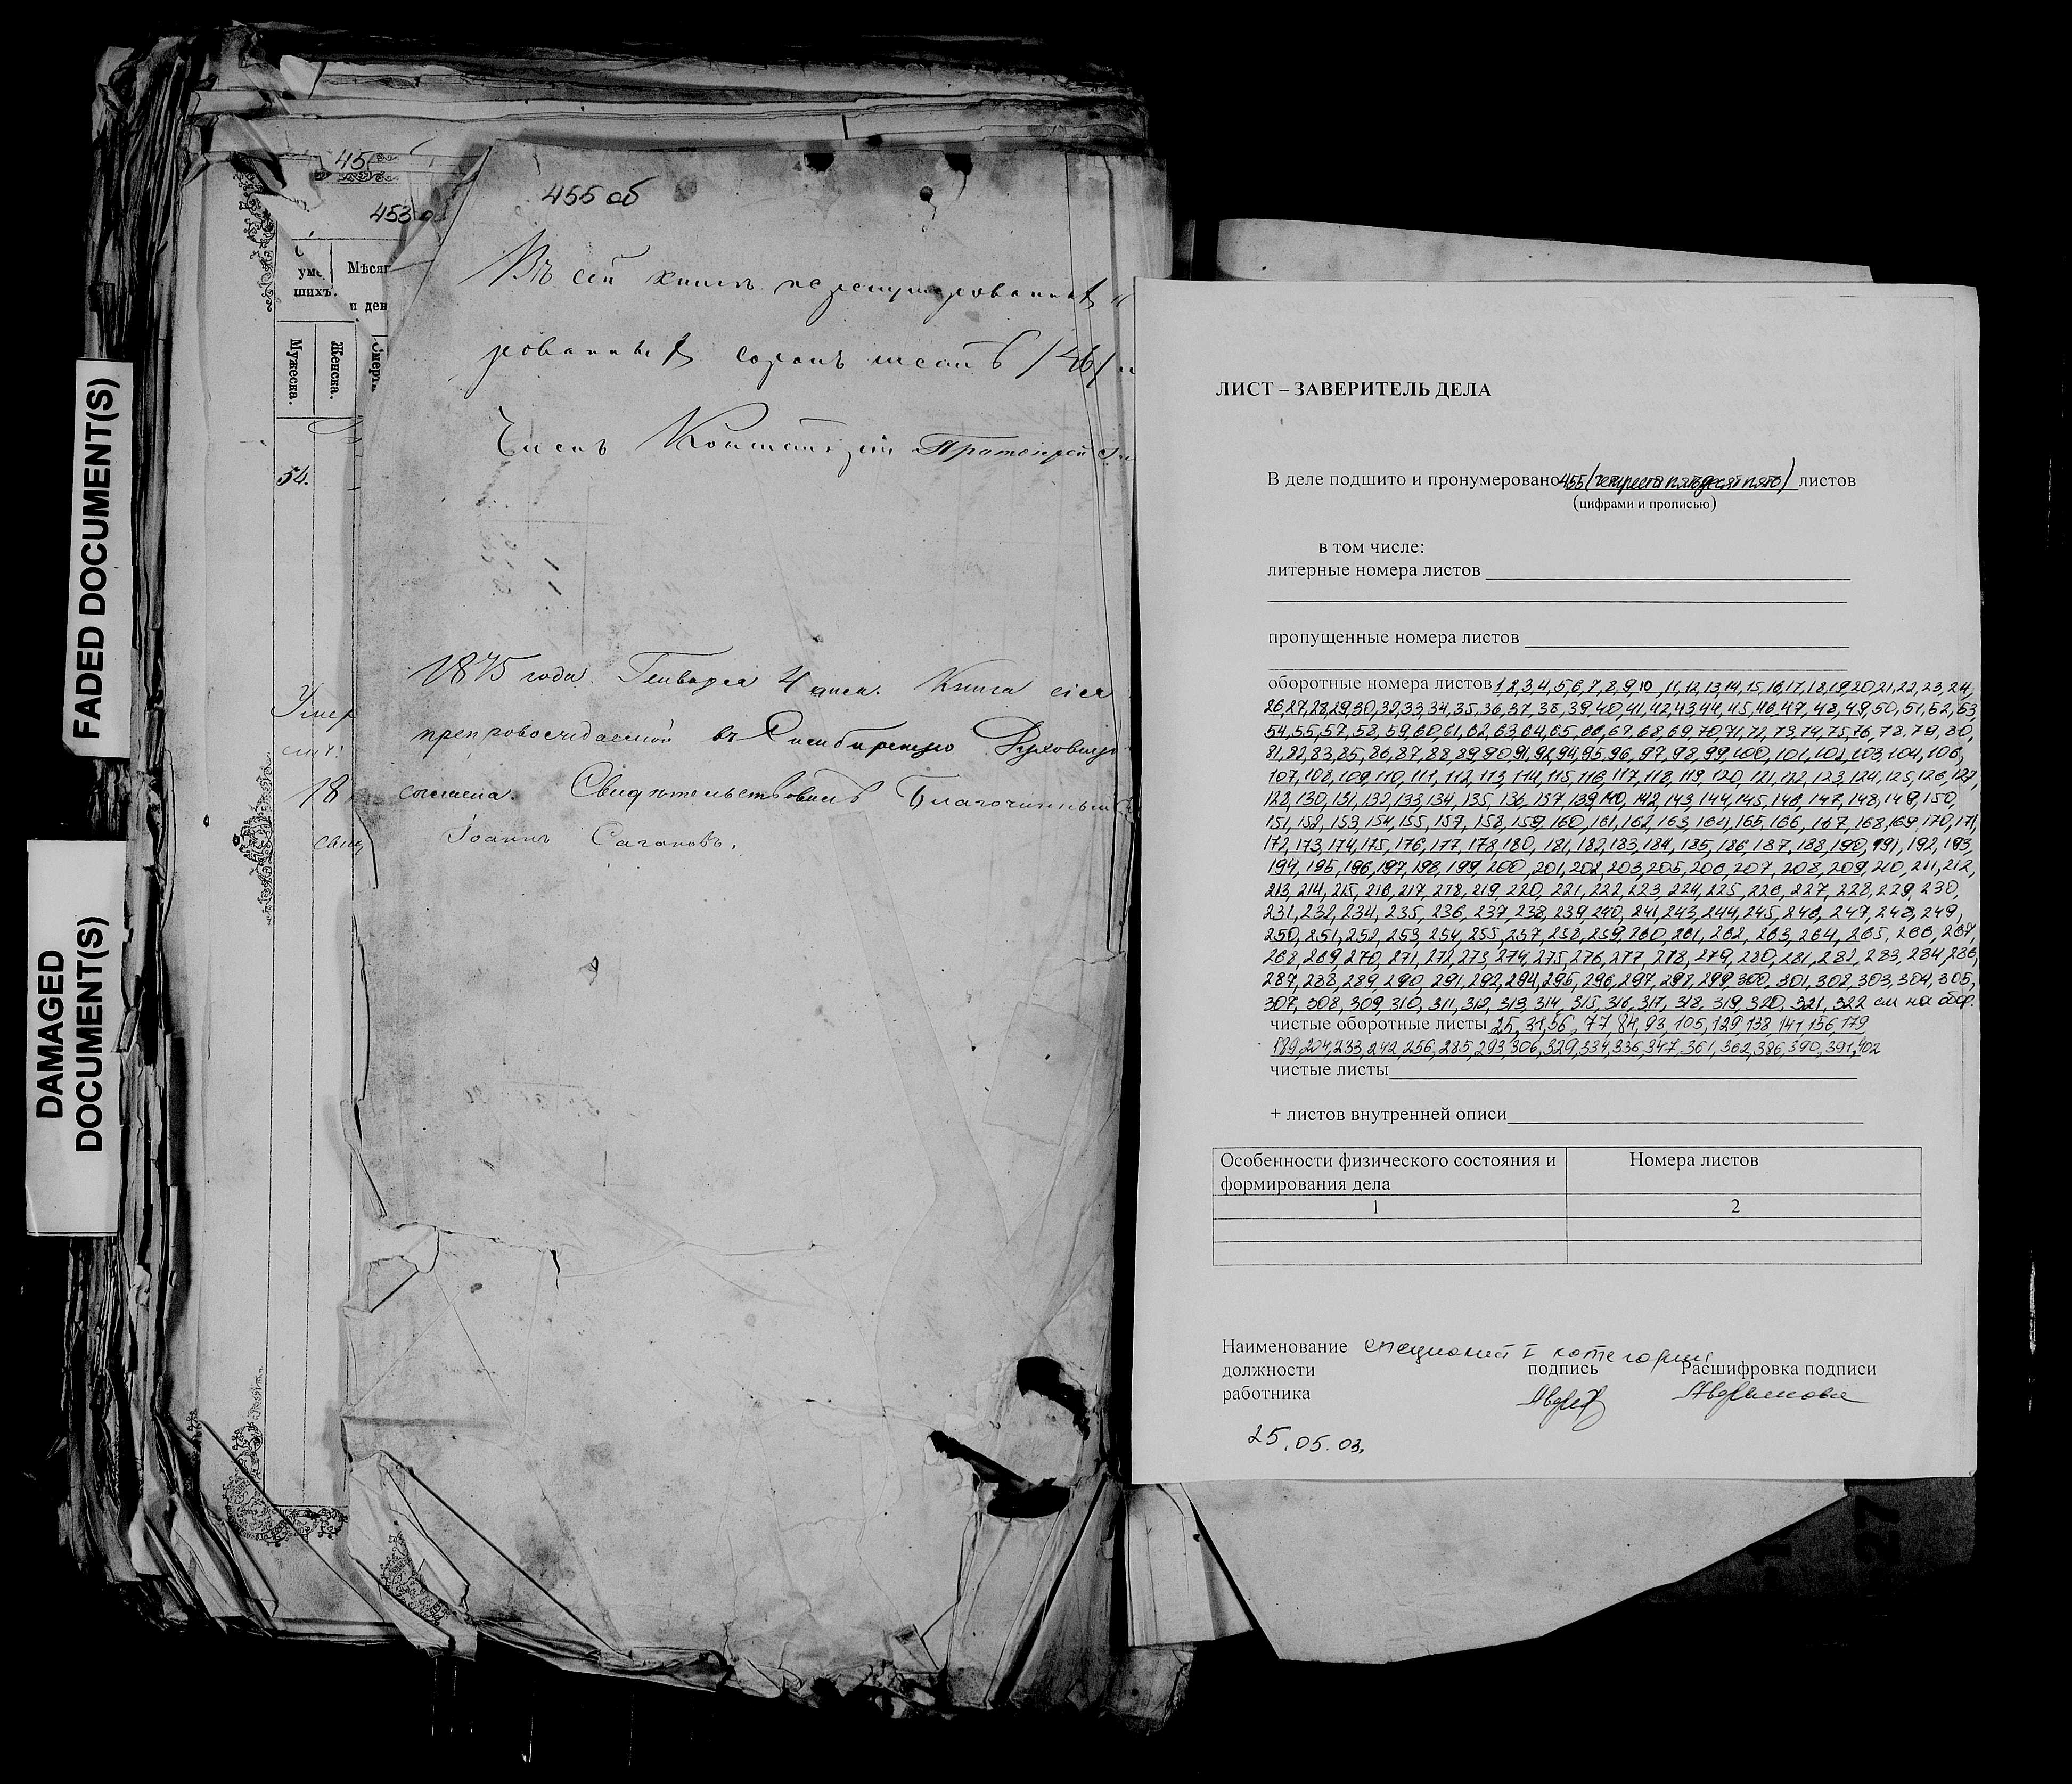 FADED DOCUMENT(S)
DAMAGED
DOCUMENT(S)
45
453 о
уме
шихъ.
Мѣсяц
и ден
Мужеска.
Женска.
Смерти
54.
Умер
18
455 об
Въ сей книгѣ
рованныхъ сорокъ шесть /46/
Членъ Консисторіи Протоіерей
1875 года. Генваря 4 дня. Книга сія
препровождаемой въ Симбирскую Духовную
согласна. Свидѣтельствовалъ Благочинный
Іоаннъ Сагановъ.
ЛИСТ – ЗАВЕРИТЕЛЬ ДЕЛА
В деле подшито и пронумеровано 455 (четыреста пятьдесят пять) листов
(цифрами и прописью)
в том числе:
литерные номера листов
пропущенные номера листов
оборотные номера листов 1,2,3,4,5,6,7,8,9,10,11,12,13,14,15,16,17,18,19,20,21,22,23,24,
26,27,28,29,30,32,33,34,35,36,37,38,39,40,41,42,43,44,45,46,47,48,49,50,51,52,53,
54,55,57,58,59,60,61,62,63,64,65,66,67,68,69,70,71,72,73,74,75,76,78,79,80,
81,82,83,85,86,87,88,89,90,91,92,94,95,96,97,98,99,100,101,102,103,104,106,
107,108,109,110,111,112,113,114,115,116,117,118,119,120,121,122,123,124,125,126,127,
128,130,131,132,133,134,135,136,137,139,140,142,143,144,145,146,147,148,149,150,
151,152,153,154,155,157,158,159,160,161,162,163,164,165,166,167,168,169,170,171,
172,173,174,175,176,177,178,180,181,182,183,184,185,186,187,188,190,191,192,193,
194,195,196,197,198,199,200,201,202,203,205,206,207,208,209,210,211,212,
213,214,215,216,217,218,219,220,221,222,223,224,225,226,227,228,229,230,
231,232,234,235,236,237,238,239,240,241,243,244,245,246,247,248,249,
250,251,252,253,254,255,257,258,259,260,261,262,263,264,265,266,267,
268,269,270,271,272,273,274,275,276,277,278,279,280,281,282,283,284,286,
287,288,289,290,291,292,294,295,296,297,298,299,300,301,302,303,304,305,
307,308,309,310,311,312,313,314,315,316,317,318,319,320,321,322 см на обор.
чистые оборотные листы 25,31,56,77,84,93,105,129,138,141,156,179
189,204,233,242,256,285,293,306,329,334,336,347,361,362,386,390,391,402
чистые листы
+ листов внутренней описи
Особенности физического состояния и
формирования дела
Номера листов
1
2
Наименование специалист I категории
должности
работника
подпись
Расшифровка подписи
Аверьянова
25.05.03.
27